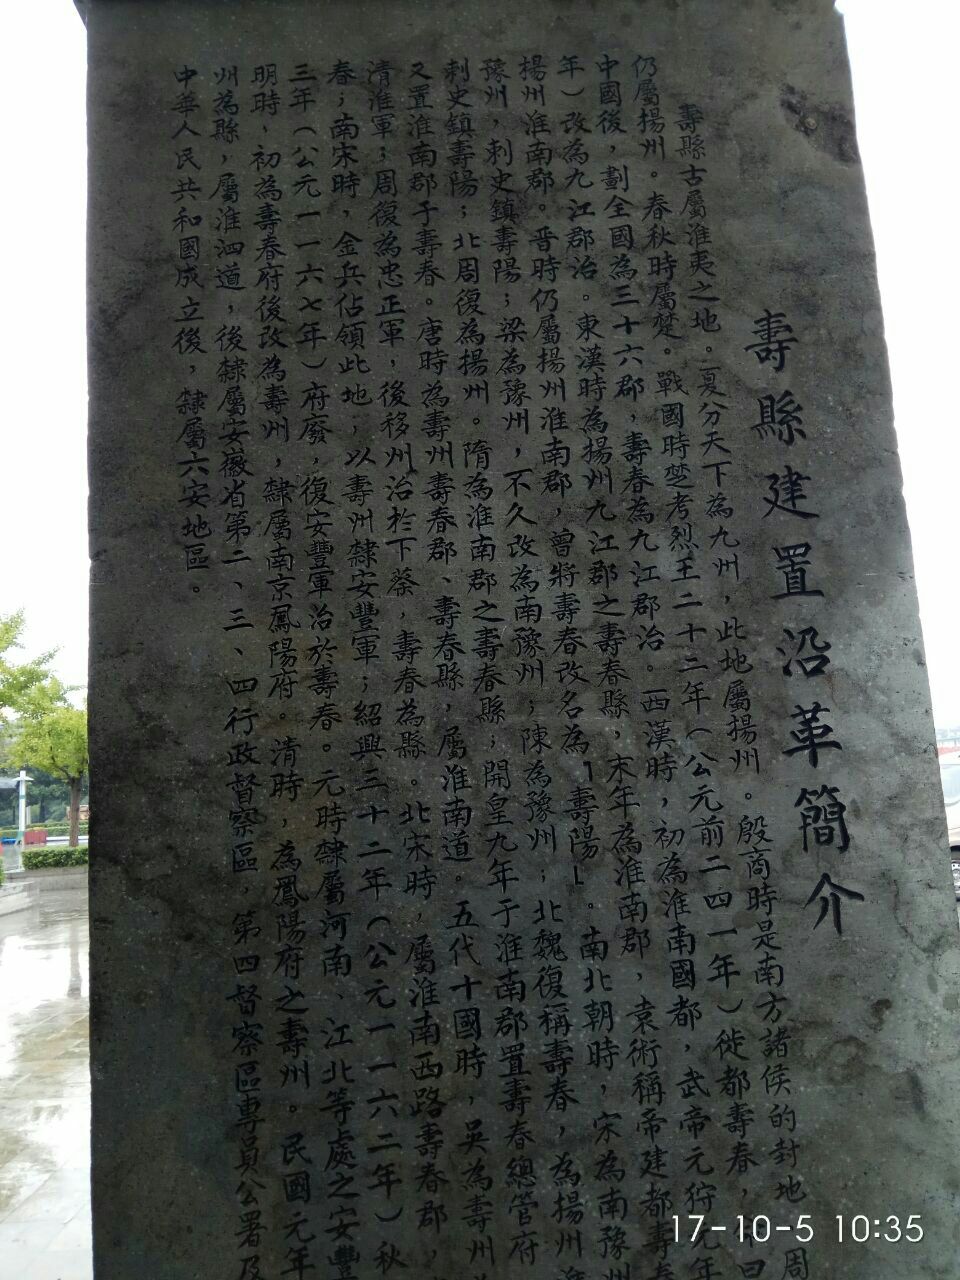 壽縣建置沿革簡介
壽縣古屬淮夷之地。夏分天下為九州，此地屬揚州。殷商時是南方諸侯的封地，周
仍屬揚州。春秋時屬楚。戰國時楚考烈王二十二年（公元前二四一年）徙都壽春，命曰
中國後，劃全國為三十六郡，壽春為九江郡治。西漢時，初為淮南國都，武帝元狩元年
年）改為九江郡治。東漢時為揚州九江郡之壽春縣，末年為淮南郡，袁術稱帝建都壽春
揚州淮南郡。晋時仍屬揚州淮南郡，曾將壽春改名為「壽陽」。南北朝時，宋為南豫州
豫州，刺史鎮壽陽；梁為豫州，不久改為南豫州；陳為豫州；北魏復稱壽春，為揚州
刺史鎮壽陽；北周復為揚州。隋為淮南郡之壽春縣；開皇九年于淮南郡置壽春總管府
又置淮南郡于壽春。唐時為壽州壽春郡、壽春縣，屬淮南道。五代十國時，吳為壽州
清淮軍；周復為忠正軍，後移州治於下蔡，壽春為縣。北宋時，屬淮南西路壽春郡，
春；南宋時，金兵佔領此地，以壽州隸安豐軍；紹興三十二年（公元一一六二年）秋
三年（公元一一六七年）府廢，復安豐軍治於壽春。元時隸屬河南、江北等處之安豐
明時，初為壽春府後改為壽州，隸屬南京鳳陽府。清時，為鳳陽府之壽州。民國元年
州為縣，屬淮泗道，後隸屬安徽省第二、三、四行政督察區，第四督察區專員公署及
中華人民共和國成立後，隸屬六安地區。
17-10-5 10:35